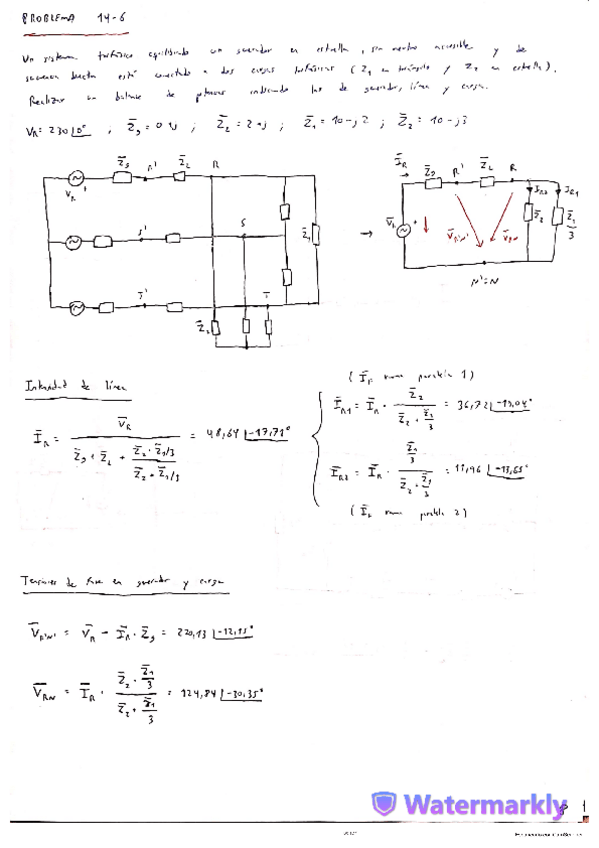 PROBLEMA 14-6
Un sistema trifásico equilibrado un generador en estrella, sin neutro accesible y de
secuencia directa está conectado a dos cargas trifásicas (Z1 en triángulo y Z2 en estrella).
Realizar un balance de potencias indicando las de generador, línea y carga.
V̄R = 230|0° ; Z̄g = ; Z̄L = 2+j ; Z̄1 = 10-j2 ; Z̄2 = 10-j3
Z̄g R' Z̄L R
VR'
S' S
Z̄1
T' T
Z̄2
→
ĪR Z̄g R' Z̄L R
IR2 IR1
V̄R V̄R'N' V̄RN Z̄2 Z̄1/3
N'=N
Intensidad de línea
ĪR = V̄R / (Z̄g + Z̄L + (Z̄2·Z̄1/3)/(Z̄2+Z̄1/3)) = 48,64|-17,71°
ĪR1 = ĪR · Z̄2/(Z̄2+Z̄1/3) = 36,72|
ĪR2 = ĪR · (Z̄1/3)/(Z̄2·Z̄1/3) = 11,96|
Tensiones de fase en generador y carga
V̄R'N' = V̄R - ĪR·Z̄g = 220,13|
V̄RN = ĪR · (Z̄2·Z̄1/3)/(Z̄2+Z̄1/3) = 124,84|-30,35°
Watermarkly